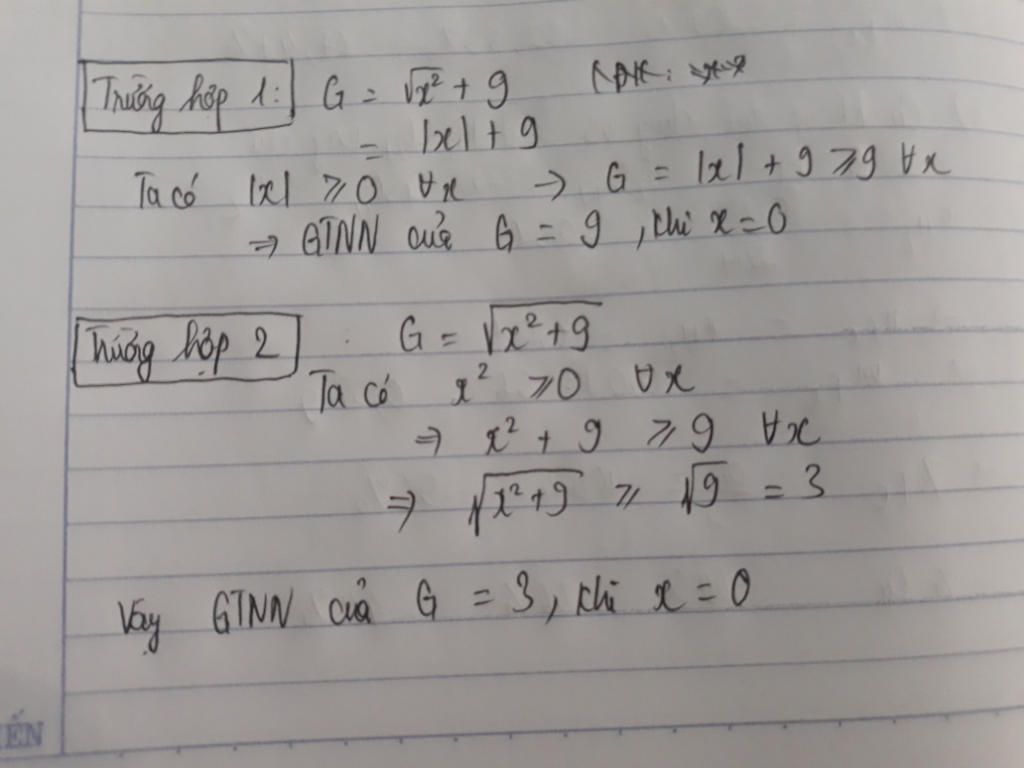 Trường hợp 1: G = √x² + 9 (ĐK:
= |x| + 9
Ta có |x| ⩾ 0 ∀x → G = |x| + 9 ⩾ 9 ∀x
⇒ GTNN của G = 9, khi x = 0
Trường hợp 2 : G = √(x² + 9)
Ta có x² ⩾ 0 ∀x
⇒ x² + 9 ⩾ 9 ∀x
⇒ √(x² + 9) ⩾ √9 = 3
Vậy GTNN của G = 3, khi x = 0
ẾN